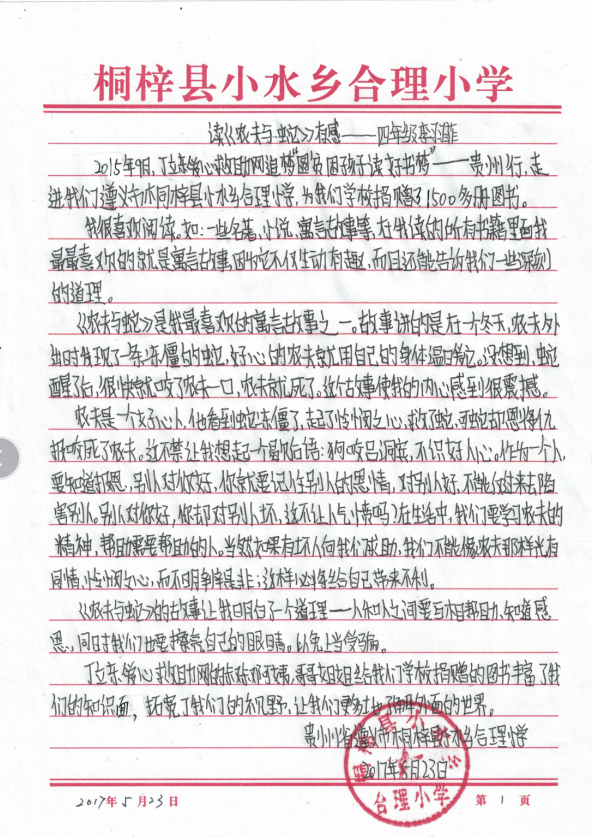 桐梓县小水乡合理小学
读《农夫与蛇》有感——四年级李
2015年9月,丁立京爱心救助网追梦“圆农民孩子读好书梦”——贵州行,走
进我们遵义市桐梓县小水乡合理小学,为我们学校捐赠了1500多册图书。
我很喜欢阅读。如:一些名著、小说、寓言故事等,在我读的所有书籍里面我
最最喜欢的就是寓言故事,因为它不仅生动有趣,而且还能告诉我们一些深刻
的道理。
《农夫与蛇》是我最喜欢的寓言故事之一。故事讲的是在一个冬天,农夫外
出时发现了一条冻僵的蛇,好心的农夫就用自己的身体温暖它。没想到,蛇
醒了后,很快就咬了农夫一口,农夫就死了。这个故事使我的内心感到很震撼。
农夫是一个好心人,他看到蛇冻僵了,起了怜悯之心,救了蛇,可蛇却恩将仇
报咬死了农夫。这不禁让我想起一个歇后语:狗咬吕洞宾,不识好人心。作为一个人,
要知道报恩,别人对你好,你就要记住别人的恩情,对别人好,不能反过来去陷
害别人。别人对你好,你却对别人坏,这不让人气愤吗?在生活中,我们要学习农夫的
精神,帮助需要帮助的人。当然如果有坏人向我们求助,我们不能像农夫那样光有
同情、怜悯之心,而不明争是非;这样必将给自己带来不利。
《农夫与蛇》的故事让我明白了一个道理——人和人之间要互相帮助、知道感
恩,同时我们也要擦亮自己的眼睛。以免上当受骗。
丁立京爱心救助网的叔叔阿姨、哥哥姐姐给我们学校捐赠的图书丰富了我
们的知识面,拓宽了我们的视野,让我们更好地了解外面的世界。
贵州省遵义市桐梓县小水乡合理小学
2017年5月23日
合理小学
2017年5月23日 第1页